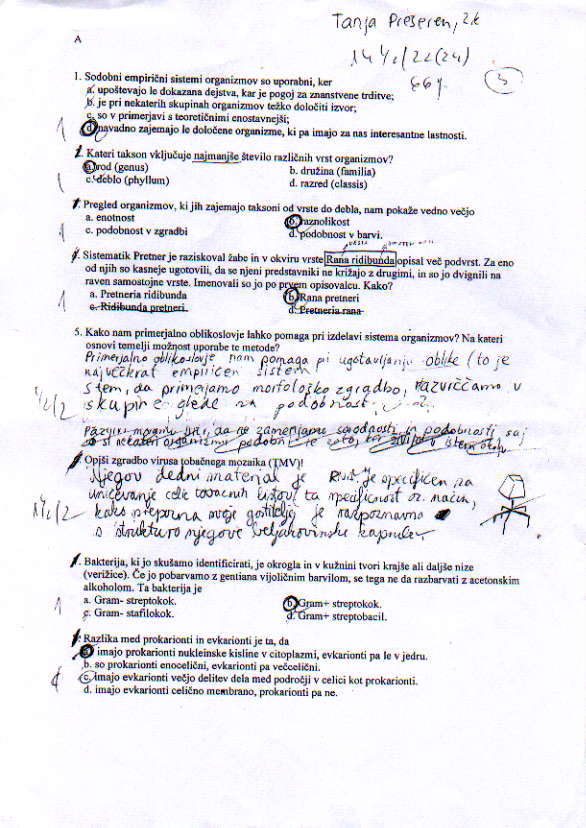 Tanja Prešeren, 2.k
A
14 ½/22(24)
66%
3
1. Sodobni empirični sistemi organizmov so uporabni, ker
a. upoštevajo le dokazana dejstva, kar je pogoj za znanstvene trditve;
b. je pri nekaterih skupinah organizmov težko določiti izvor;
c. so v primerjavi s teoretičnimi enostavnejši;
d. navadno zajemajo le določene organizme, ki pa imajo za nas interesantne lastnosti.
1
2. Kateri takson vključuje najmanjše število različnih vrst organizmov?
a. rod (genus) b. družina (familia)
c. deblo (phyllum) d. razred (classis)
1
3. Pregled organizmov, ki jih zajemajo taksoni od vrste do debla, nam pokaže vedno večjo
a. enotnost b. raznolikost
c. podobnost v zgradbi d. podobnost v barvi.
4. Sistematik Pretner je raziskoval žabe in v okviru vrste Rana ridibunda opisal več podvrst. Za eno
od njih so kasneje ugotovili, da se njeni predstavniki ne križajo z drugimi, in so jo dvignili na
raven samostojne vrste. Imenovali so jo po prvem opisovalcu. Kako?
1
a. Pretneria ridibunda b. Rana pretneri
c. Ridibunda pretneri. d. Pretneria rana
5. Kako nam primerjalno oblikoslovje lahko pomaga pri izdelavi sistema organizmov? Na kateri
osnovi temelji možnost uporabe te metode?
Primerjalno oblikoslovje nam pomaga pi ugotavljanju oblike (to je
največkrat empiričen sistem
S tem, da primerjamo morfološko zgradbo, razvrščamo v
skupine glede na podobnost.
½/2
6. Opiši zgradbo virusa tobačnega mozaika (TMV)!
Njegov dedni material je RNK. Je specifičen za
uničevanje celic tobačnih listov, ta specifičnost oz. način,
kako prepozna svoje gostitelje je razpoznavno
s strukturo njegove beljakovinske kapsule.
1½/2
7. Bakterija, ki jo skušamo identificirati, je okrogla in v kužnini tvori krajše ali daljše nize
(verižice). Če jo pobarvamo z gentiana vijoličnim barvilom, se tega ne da razbarvati z acetonskim
alkoholom. Ta bakterija je
a. Gram- streptokok. b. Gram+ streptokok.
c. Gram- stafilokok. d. Gram+ streptobacil.
1
8. Razlika med prokarionti in evkarionti je ta, da
a. imajo prokarionti nukleinske kisline v citoplazmi, evkarionti pa le v jedru.
b. so prokarionti enocelični, evkarionti pa večcelični.
c. imajo evkarionti večjo delitev dela med področji v celici kot prokarionti.
d. imajo evkarionti celično membrano, prokarionti pa ne.